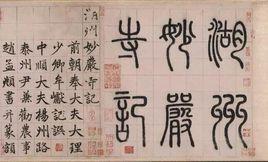 湖州
妙嚴
寺記
湖州妙嚴寺記
前朝奉大夫大理
少卿牟巘譔
中順大夫揚州路
泰州尹兼勸農事
趙孟頫書并篆額